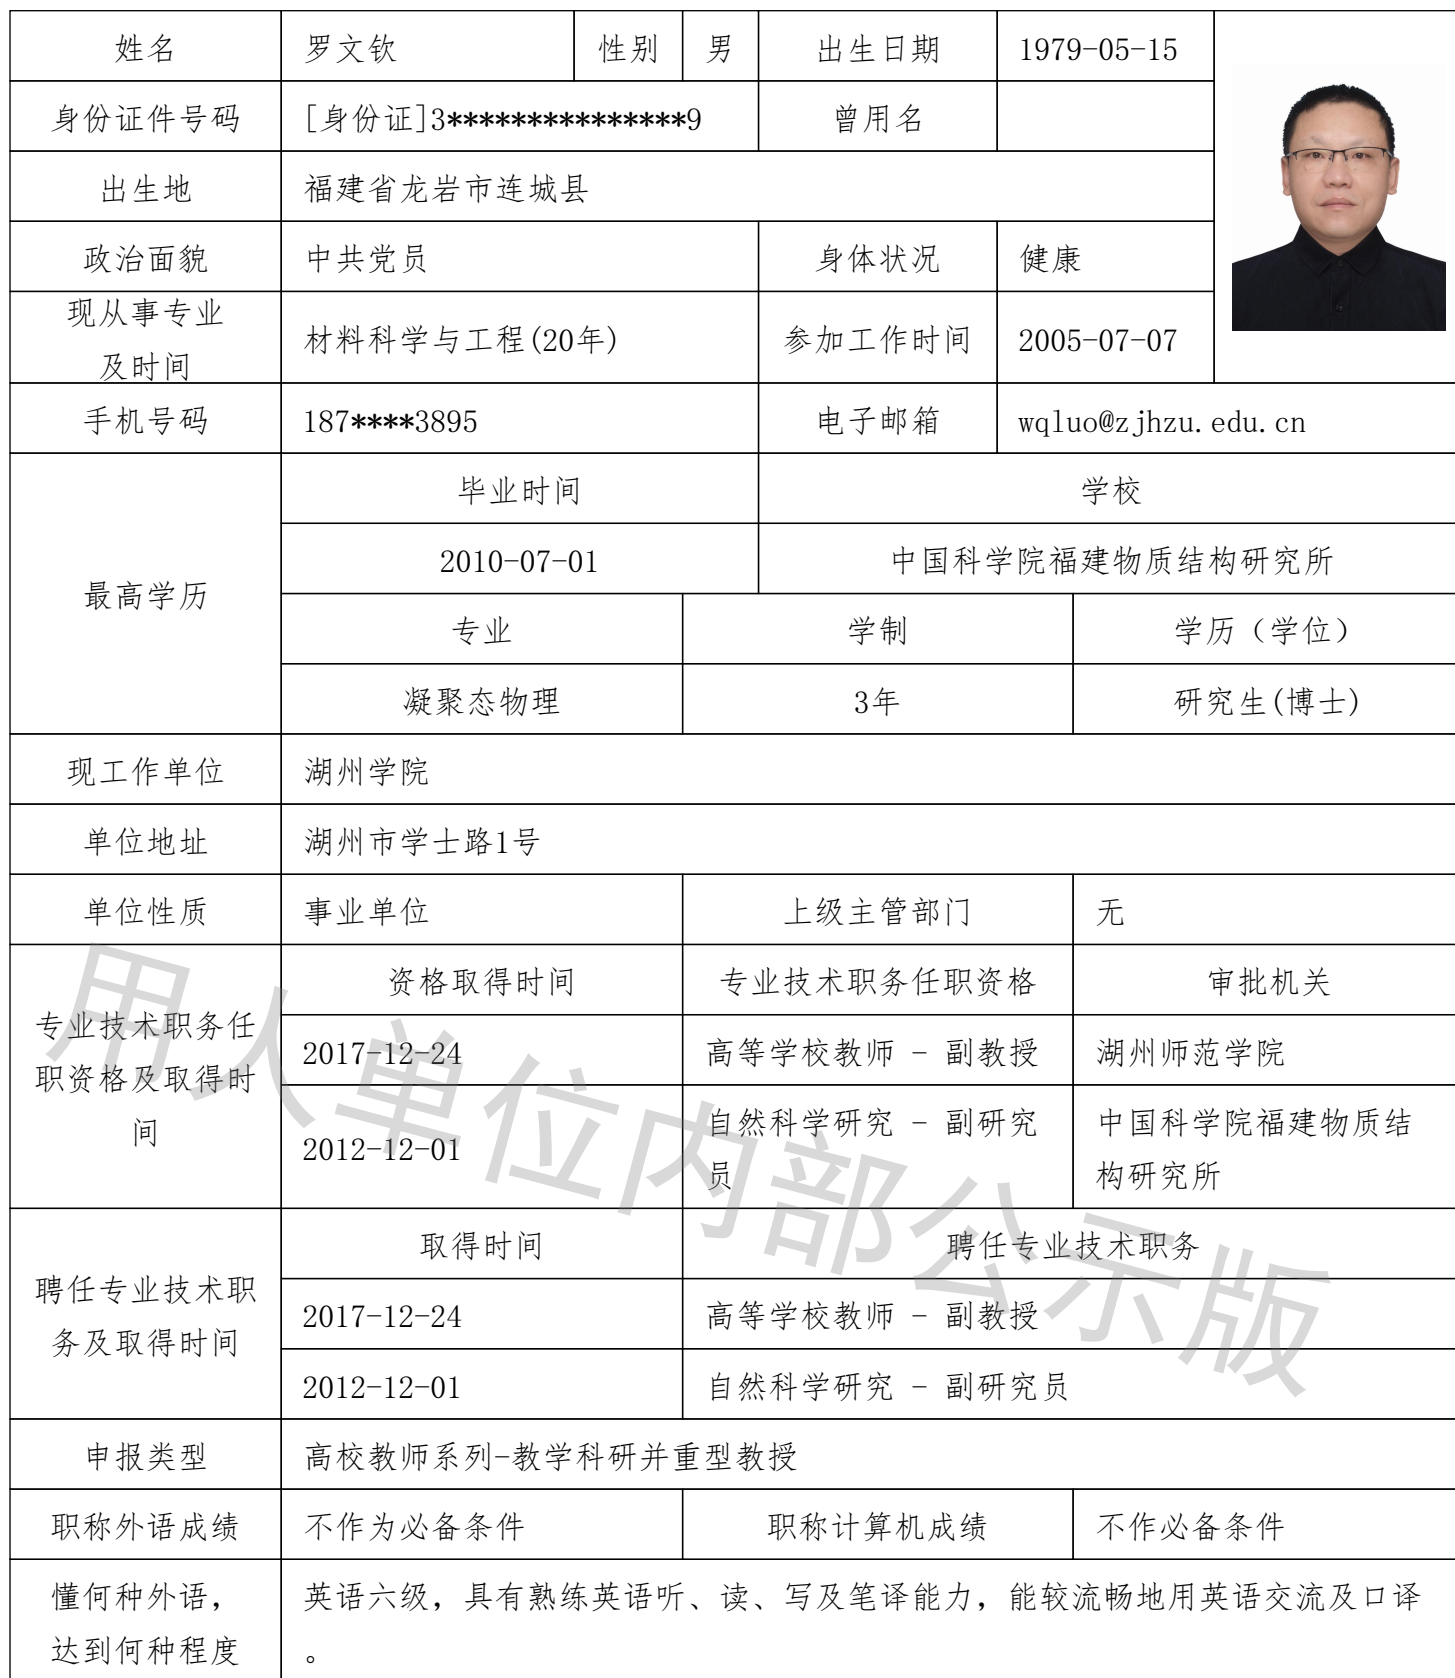 姓名 罗文钦 性别 男 出生日期 1979-05-15
身份证件号码 [身份证]3***************9 曾用名
出生地 福建省龙岩市连城县
政治面貌 中共党员 身体状况 健康
现从事专业
及时间 材料科学与工程(20年) 参加工作时间 2005-07-07
手机号码 187****3895 电子邮箱 wqluo@zjhzu.edu.cn
最高学历
毕业时间 学校
2010-07-01 中国科学院福建物质结构研究所
专业 学制 学历（学位）
凝聚态物理 3年 研究生(博士)
现工作单位 湖州学院
单位地址 湖州市学士路1号
单位性质 事业单位 上级主管部门 无
专业技术职务任
职资格及取得时
间
资格取得时间 专业技术职务任职资格 审批机关
2017-12-24 高等学校教师 - 副教授 湖州师范学院
2012-12-01
自然科学研究 - 副研究
员
中国科学院福建物质结
构研究所
聘任专业技术职
务及取得时间
取得时间 聘任专业技术职务
2017-12-24 高等学校教师 - 副教授
2012-12-01 自然科学研究 - 副研究员
申报类型 高校教师系列-教学科研并重型教授
职称外语成绩 不作为必备条件 职称计算机成绩 不作必备条件
懂何种外语，
达到何种程度
英语六级，具有熟练英语听、读、写及笔译能力，能较流畅地用英语交流及口译
。
用人单位内部公示版